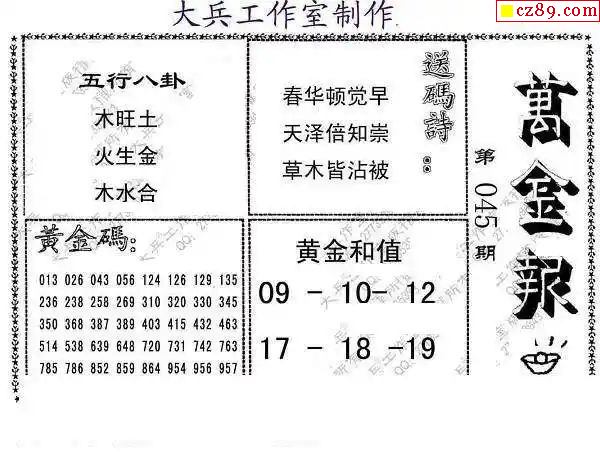 大兵工作室制作
cz89.com
五行八卦
木旺土
火生金
木水合
送碼詩:
春华顿觉早
天泽倍知崇
草木皆沾被
萬金報
第045期
黄金碼:
013 026 043 056 124 126 129 135
236 238 258 269 310 320 330 345
350 368 387 389 403 415 432 463
514 538 639 648 720 731 742 763
785 786 852 859 864 954 956 957
黄金和值
09 - 10- 12
17 - 18 -19